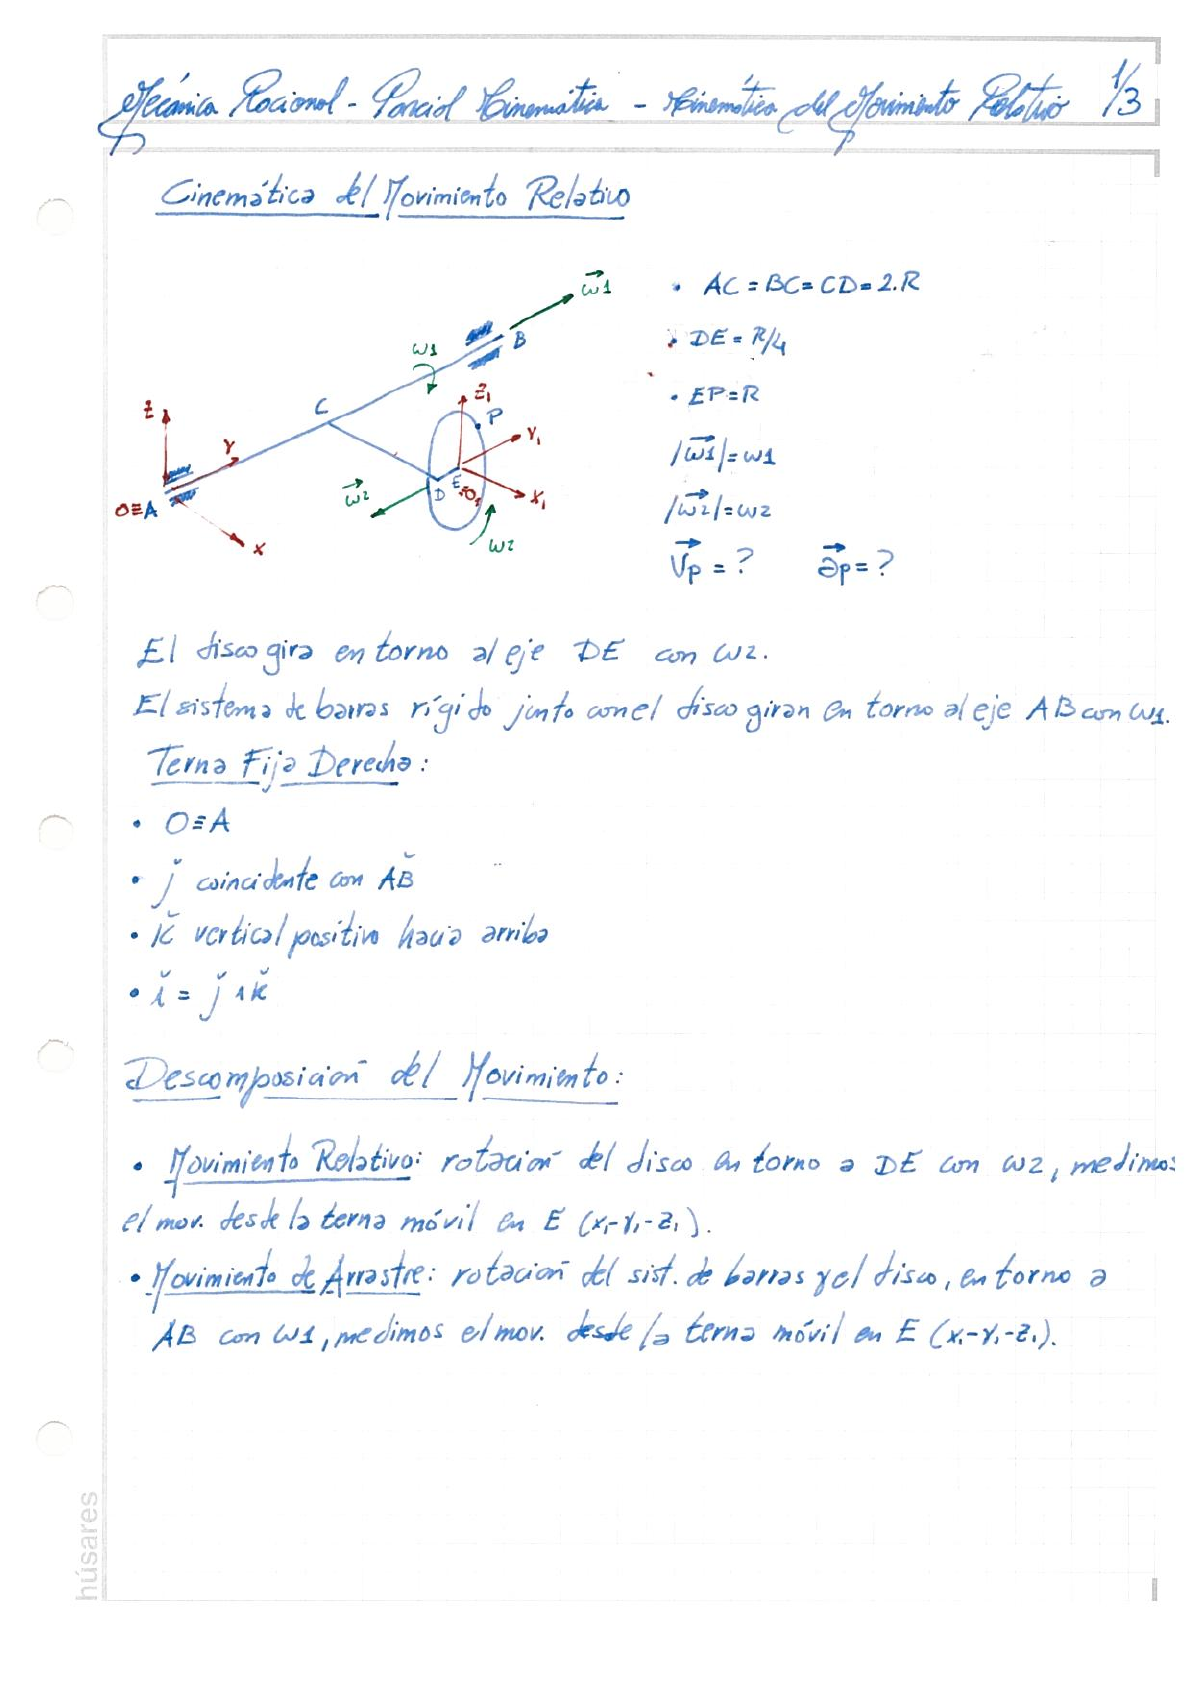 Mecánica Racional - Parcial Cinemática - Cinemática del Movimiento Relativo 1/3
Cinemática del Movimiento Relativo
• AC = BC = CD = 2.R
• DE = R/4
• EP = R
|ω1| = ω1
|ω2| = ω2
Vp = ? ap = ?
ω1
B
ω1
C
Z
Z1
P
Y
Y1
ω2
D
E≡O1
X1
O≡A
X
ω2
El disco gira en torno al eje DE con ω2.
El sistema de barras rígido junto con el disco giran en torno al eje AB con ω1.
Terna Fija Derecha:
• O≡A
• ǰ coincidente con AB̌
• ǩ vertical positivo hacia arriba
• ǐ = ǰ ∧ ǩ
Descomposición del Movimiento:
• Movimiento Relativo: rotación del disco en torno a DE con ω2, medimos
el mov. desde la terna móvil en E (x1-y1-z1).
• Movimiento de Arrastre: rotación del sist. de barras y el disco, en torno a
AB con ω1, medimos el mov. desde la terna móvil en E (x1-y1-z1).
húsares